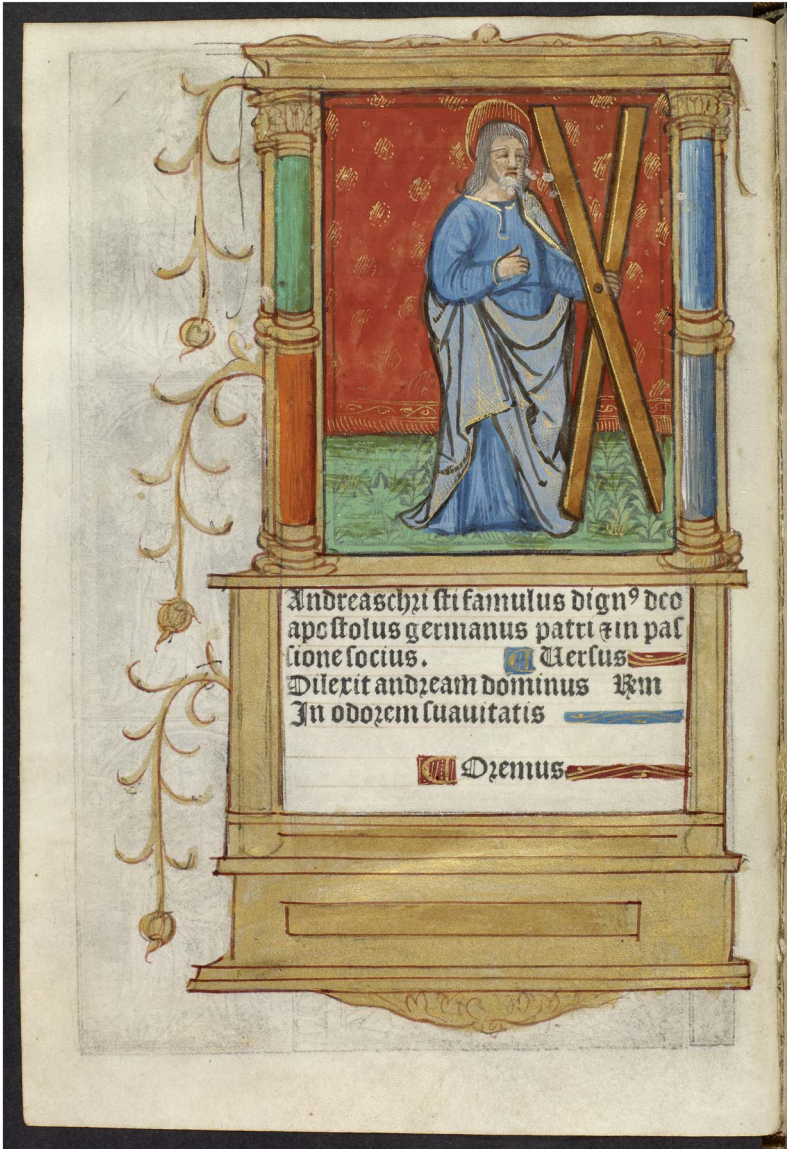 Andreaschristi famulus dignꝰ deo
apostolus germanus patri ⁊in paſ
ſione ſocius. Uersus
Dilexit andream dominus Rem
In odorem ſuauitatis
Oremus